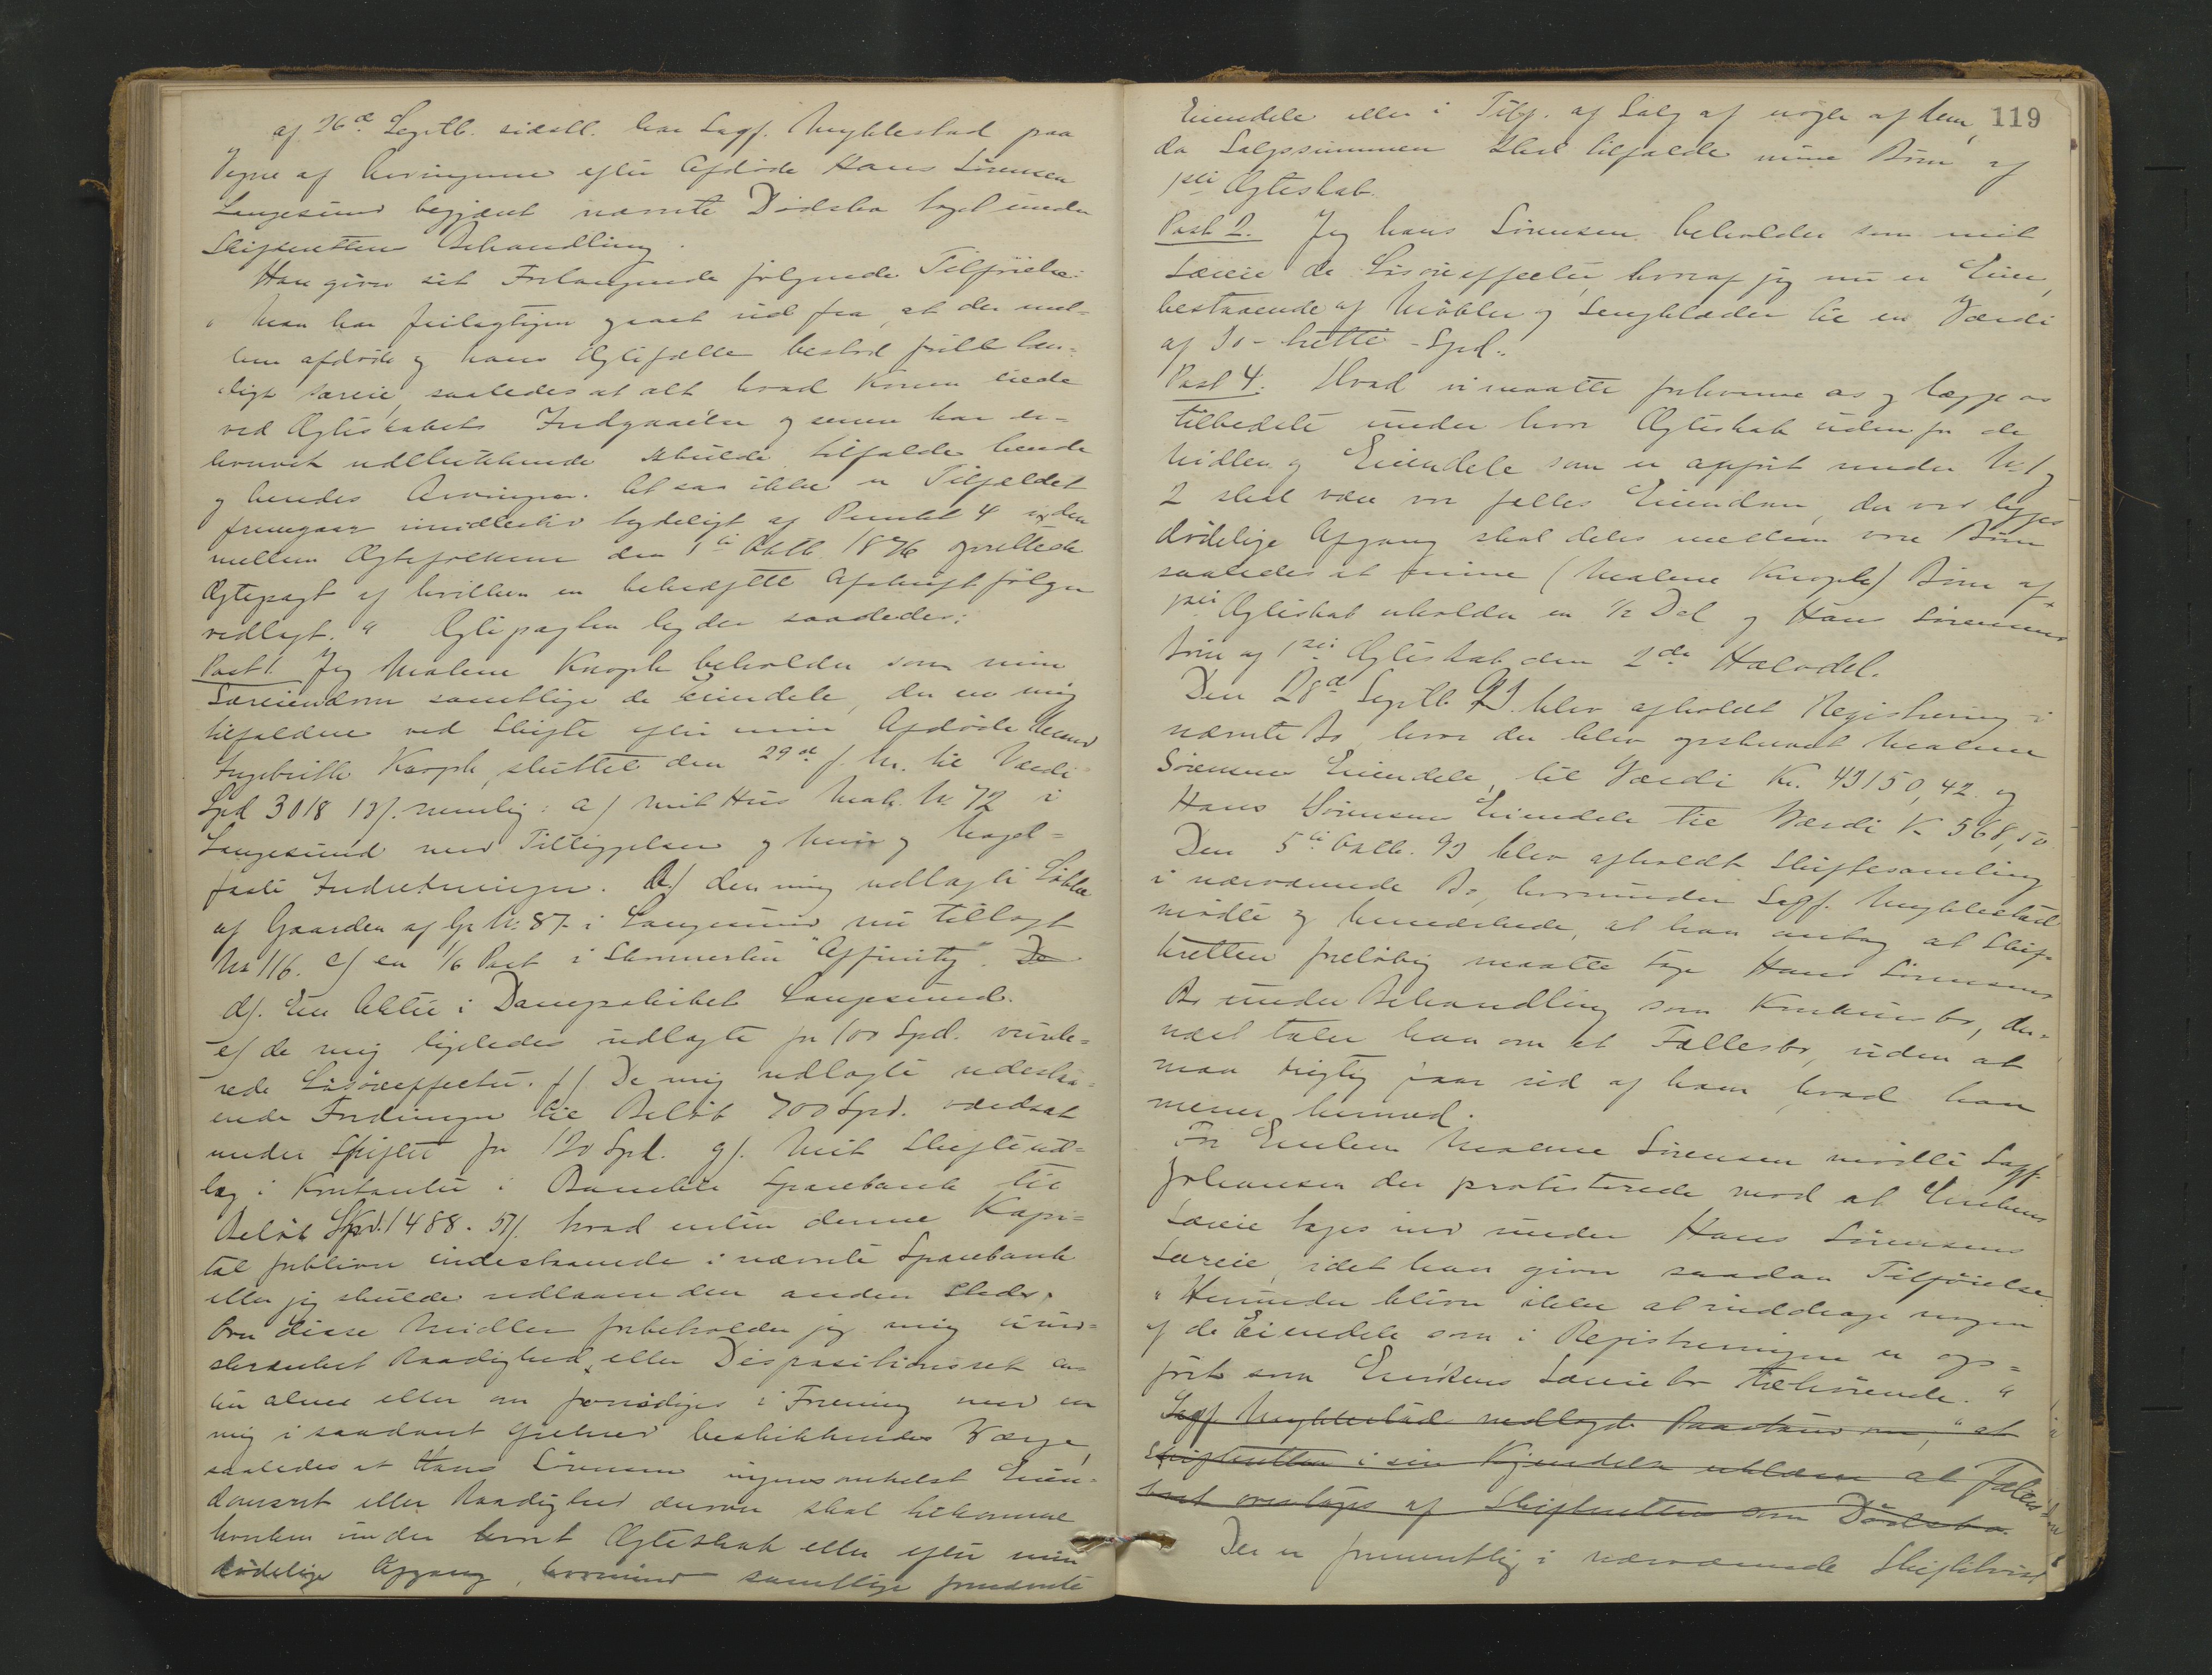 af 26de Septb. sidstl. har Sagf. Myklestad paa
Vegne af Arvingerne efter Afdøde Hans Sørensen
Langesund begjært nævnte Dødsbo taget under
Skifterettens Behandling.
Han giver sit Forlangende følgende Tilføielse:
" Man har feilagtigen gaaet ud fra, at der mel-
lem afdøde og hans Ægtefælle bestod fuldstæn-
digt Særeie, saaledes at alt hvad Konen eiede
ved Ægteskabets Indgaaelse og senere har er-
hvervet udelukkende skulde tilfalde hende
og hendes Arvinger. At saa ikke er Tilfældet
fremgaar imidlertid tydeligt af Punkt 4 i den
mellem Ægtefolkene den 1ste Oktb. 1876 oprettede
Ægtepagt af hvilken en bekræftet Afskrift følger
vedlagt." Ægtepagten lyder saaledes:
Post 1. Jeg Malene Knoph beholder som min
Særeiendom samtlige de Eiendele, der er mig
tilfaldne ved Skifte efter min Afdøde Mand
Ingebrikt Knoph, sluttet den 29de f. M. til Værdi
Spd 3018 13/. nemlig: a) mit Hus Matr. No. 72 i
Langesund med Tilliggelser og mur og nagel-
faste Indretninger. b) den mig udlagte Løkke
af Gaarden af Gr No. 87 i Langesund nu tillagt
No 116. c) en 1/6 Part i Skonnerten "Affinity". De
d). En Aktie i Dampskibet Langesund.
e) de mig ligeledes udlagte for 100 Spd. vurde-
rede Løsøreeffecter. f) De mig udlagte udestaa-
ende Fordringer til Beløb 700 Spd. værdsat
under Skiftet for 120 Spd. g). Mit Skifteud-
læg i Kontanter i Bamble Sparebank til
Beløb Spd. 1488. 57/. hvad enten denne Kapi-
tal forbliver indestaaende i nævnte Sparebank
eller jeg skulde udlaane den andensteds.
Over disse Midler forbeholder jeg mig uind-
skrænket Raadighed eller Dispositionsret en-
ten alene eller om fornødiges i Forening med en
mig i saadant Øiemed beskikkendes Værge,
saaledes at Hans Sørensen ingensomhelst Eien-
domsret eller Raadighed derover skal tilkomme
hverken under vort Ægteskab eller efter min
dødelige Afgang, hvorimod samtlige fornævnte
119
Eiendele eller i Tilf. af Salg af nogle af dem,
da Salgssummen skal tilfalde mine Børn af
1ste Ægteskab.
Post 2. Jeg Hans Sørensen beholder som mit
Særeie de Løsøreeffecter, hvoraf jeg nu er Eier,
bestaaende af Møbler og Sengklæder til en Værdi
af 30 - tretti - Spd..
Post 4. Hvad vi maatte forhverve os og lægge os
tilbedste under vort Ægteskab udenfor de
Midler og Eiendele som er anført under No. 1 og
2 skal være vor fælles Eiendom, der ved begges
dødelige Afgang skal deles mellem vore Børn
saaledes at mine (Malene Knophs) Børn af
1ste Ægteskab erholder en 1/2 Del og Hans Sørensens
Børn af 1ste Ægteskab den 2den Halvdel.
Den 28de Septb 93 blev afholdt Registrering i
nævnte Bo, hvor der blev opskrevet Malene
Sørensens Eiendele, til Værdi Kr. 43150,42 og
Hans Sørensens Eiendele til Værdi Kr 568,50
Den 5te Oktb. 93 blev afholdt Skiftesamling
i nærværende Bo, hvorunder Sagf. Myklestad
mødte og bemærkede, at han antog at Skif-
teretten foreløbig maatte tage Hans Sørensens
Bo under Behandling som Konkursbo, der-
næst taler han om et Fællesbo, uden at
man rigtig faar ud af ham hvad han
mener hermed.
For Enken Malene Sørensen mødte Sagf.
Johansen der protesterede mod at Enkens
Særeie toges ind under Hans Sørensens
Særeie, idet han giver saadan Tilføielse.
" Herunder bliver ikke at inddrage nogen
af de Eiendele som i Registreringen er op-
ført som Enkens Særeiebo tilhørende."
Sagf. Myklestad nedlagde Paastand om, "at
Skifteretten i sin Kjendelse erklærer at Fælles-
boet overtages af Skifteretten som Dødsbo.
Der er fremmødt i nærværende